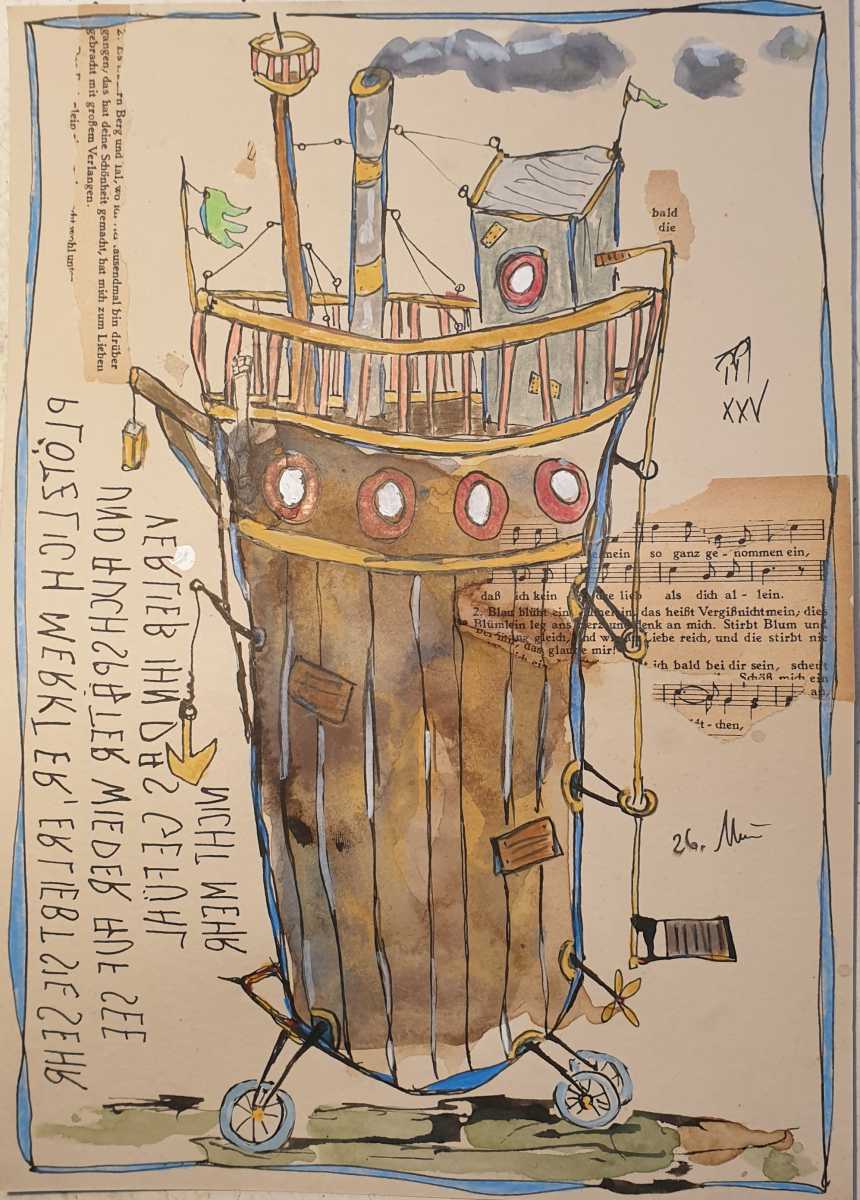 PLÖTZLICH MERKT ER, ER LIEBT SIE SEHR
UND AUCH SPÄTER WIEDER AUF SEE
VERLIEß IHN DAS GEFÜHL
NICHT MEHR
Berg und Tal, wo tausendmal bin drüber
gangen, das hat deine Schönheit gemacht, hat mich zum Lieben
gebracht mit großem Verlangen.
bald
die
XXV
mein so ganz ge - nommen ein,
daß ich kein lieb als dich al - lein.
2. Blau blüht ein das heißt Vergißnichtmein; dies
Blümlein leg ans Herz und denk an mich. Stirbt Blum und
gleich, sind wir an Liebe reich, und die stirbt nie
das glaube mir!
ich bald bei dir sein,
Schöß mich ein
an,
t - chen,
26.